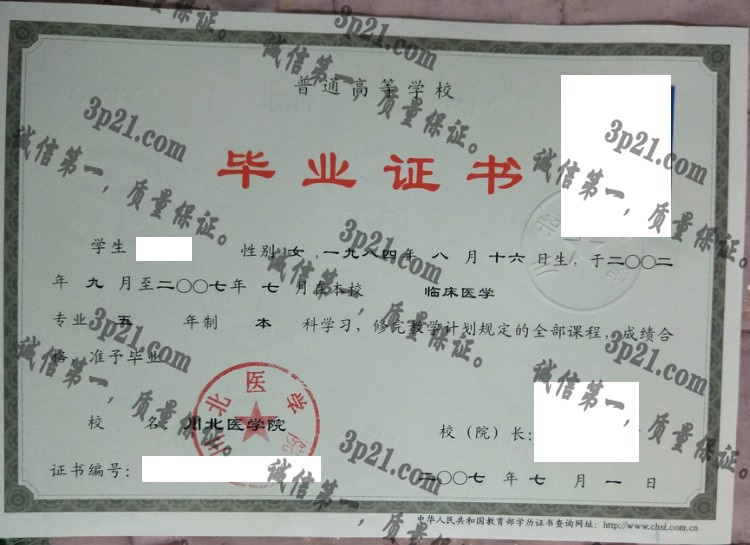 普通高等学校
毕业证书
学生 性别 女，一九八四年 八 月 十六 日生，于二〇〇二
年 九 月至二〇〇七年 七 月在本校 临床医学
专业 五 年制 本 科学习，修完教学计划规定的全部课程，成绩合
格 准予毕业
川北医学院
校 名 川北医学院
校（院）长：
证书编号：
二〇〇七 年 七 月 一 日
中华人民共和国教育部学历证书查询网址：http://www.chsi.com.cn
3p21.com
诚信第一，质量保证。
3p21.com
诚信第一，质量保证。
3p21.com
诚信第一，质量保证。
3p21.com
诚信第一，质量保证。
3p21.com
诚信第一，质量保证。
3p21.com
诚信第一，质量保证。
3p21.com
诚信第一，质量保证。
质量保证。